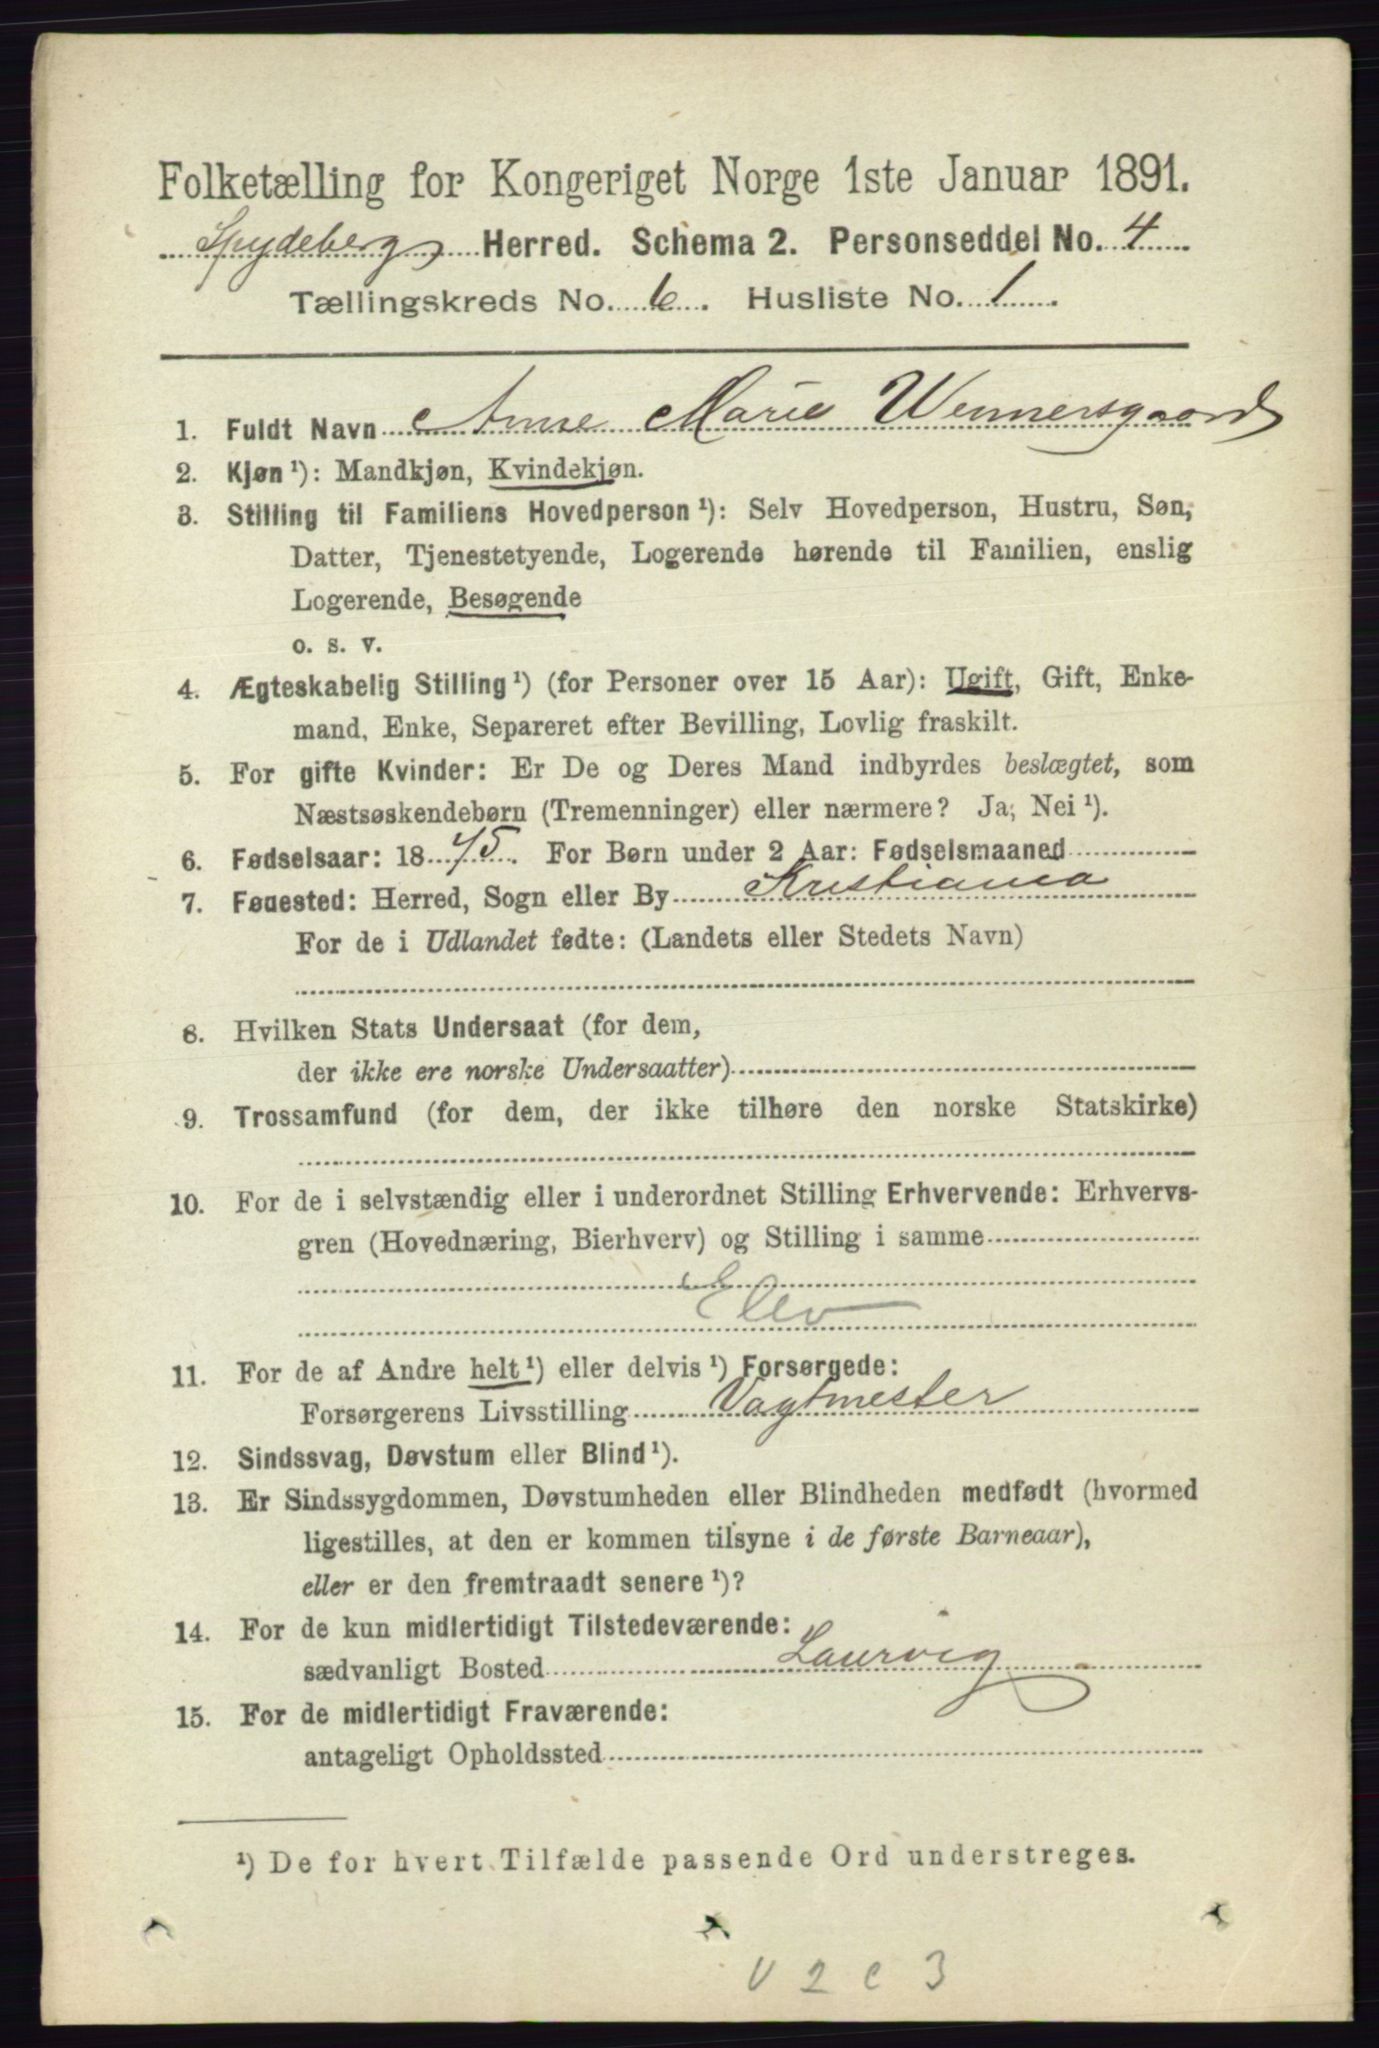 Folketælling for Kongeriget Norge 1ste Januar 1891.
Spydeberg Herred. Schema 2. Personseddel No. 4
Tællingskreds No. 6. Husliste No. 1.
1. Fuldt Navn Anne Marie Wennersgaard
2. Kjøn ¹): Mandkjøn, Kvindekjøn.
3. Stilling til Familiens Hovedperson ¹): Selv Hovedperson, Hustru, Søn,
Datter, Tjenestetyende, Logerende hørende til Familien, enslig
Logerende, Besøgende
o. s. v.
4. Ægteskabelig Stilling ¹) (for Personer over 15 Aar): Ugift, Gift, Enke-
mand, Enke, Separeret efter Bevilling, Lovlig fraskilt.
5. For gifte Kvinder: Er De og Deres Mand indbyrdes beslægtet, som
Næstsøskendebørn (Tremenninger) eller nærmere? Ja, Nei ¹).
6. Fødselsaar: 1875. For Børn under 2 Aar: Fødselsmaaned
7. Fødested: Herred, Sogn eller By Kristiania
For de i Udlandet fødte: (Landets eller Stedets Navn)
8. Hvilken Stats Undersaat (for dem,
der ikke ere norske Undersaatter)
9. Trossamfund (for dem, der ikke tilhøre den norske Statskirke)
10. For de i selvstændig eller i underordnet Stilling Erhvervende: Erhvervs-
gren (Hovednæring, Bierhverv) og Stilling i samme
Elev
11. For de af Andre helt ¹) eller delvis ¹) Forsørgede:
Forsørgerens Livsstilling Vagtmester
12. Sindssvag, Døvstum eller Blind ¹).
13. Er Sindssygdommen, Døvstumheden eller Blindheden medfødt (hvormed
ligestilles, at den er kommen tilsyne i de første Barneaar),
eller er den fremtraadt senere ¹)?
14. For de kun midlertidigt Tilstedeværende:
sædvanligt Bosted Laurvig
15. For de midlertidigt Fraværende:
antageligt Opholdssted
¹) De for hvert Tilfælde passende Ord understreges.
v 2 c 3